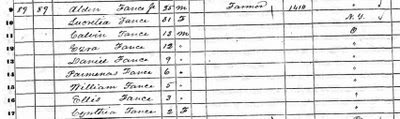 9 89 89 Alden Fance Jr 35 m Farmer 1410 "
10 Lucretia Fance 31 F N.Y. ✓
11 Calvin Fance 13 m O
12 Ezra Fance 12 " "
13 Daniel Fance 9 " "
14 Parmenas Fance 6 " "
15 William Fance 5 " "
16 Ellis Fance 3 " "
17 Cynthia Fance 2 F "